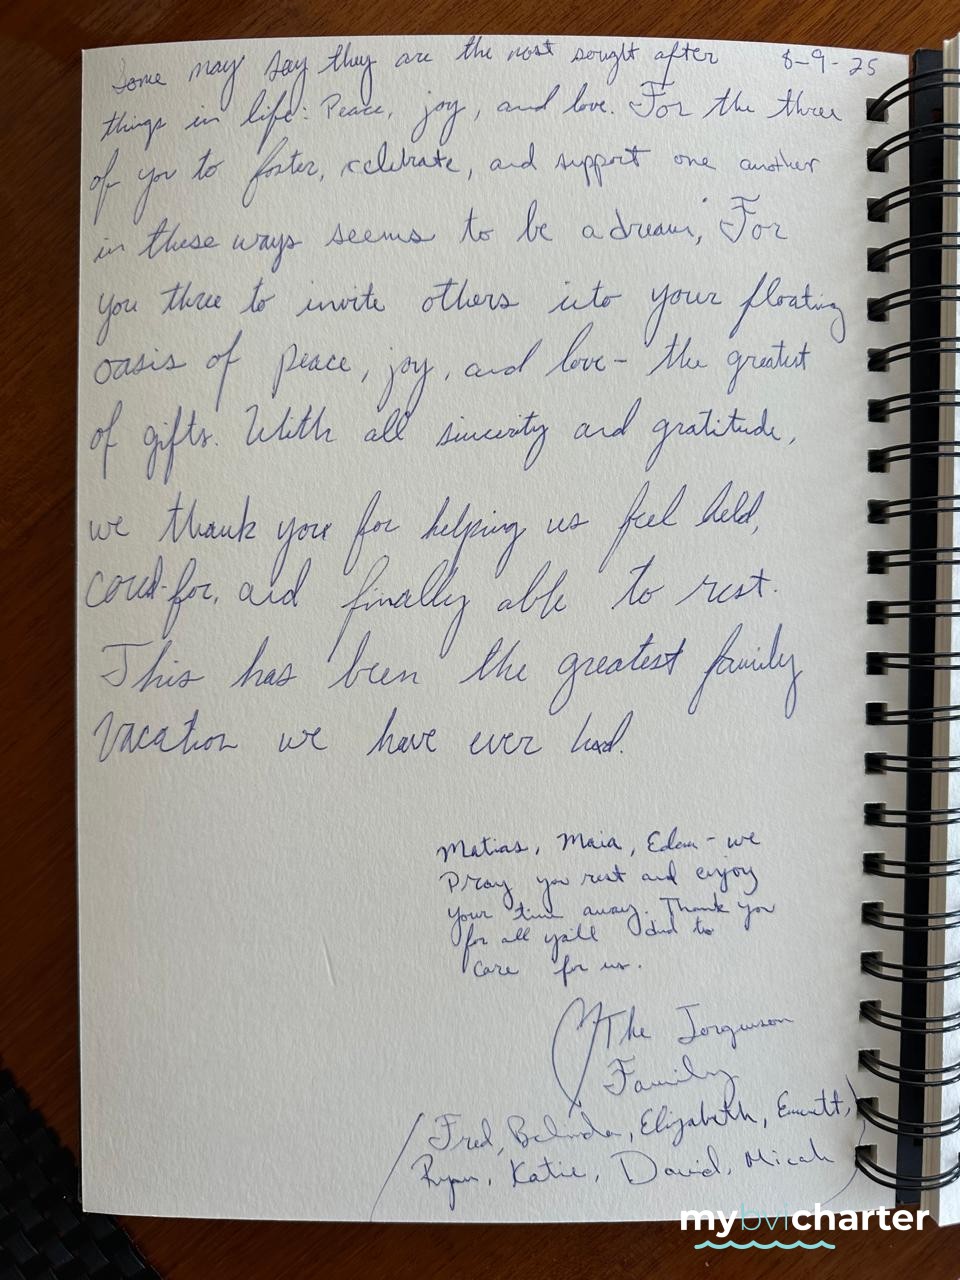 Some may say they are the most sought after 8-9-25
things in life: Peace, joy, and love. For the three
of you to foster, celebrate, and support one another
in these ways seems to be a dream; For
you three to invite others into your floating
oasis of peace, joy, and love - the greatest
of gifts. With all sincerity and gratitude,
we thank you for helping us feel held,
cared-for, and finally able to rest.
This has been the greatest family
vacation we have ever had.
Matias, Maia, Edam - we
Pray you rest and enjoy
your time away. Thank you
for all ya'll did to
care for us.
The Jorgenson
Family
(Fred, Belinda, Elizabeth, Emmett,
Ryan, Katie, David, Micah)
mybvicharter